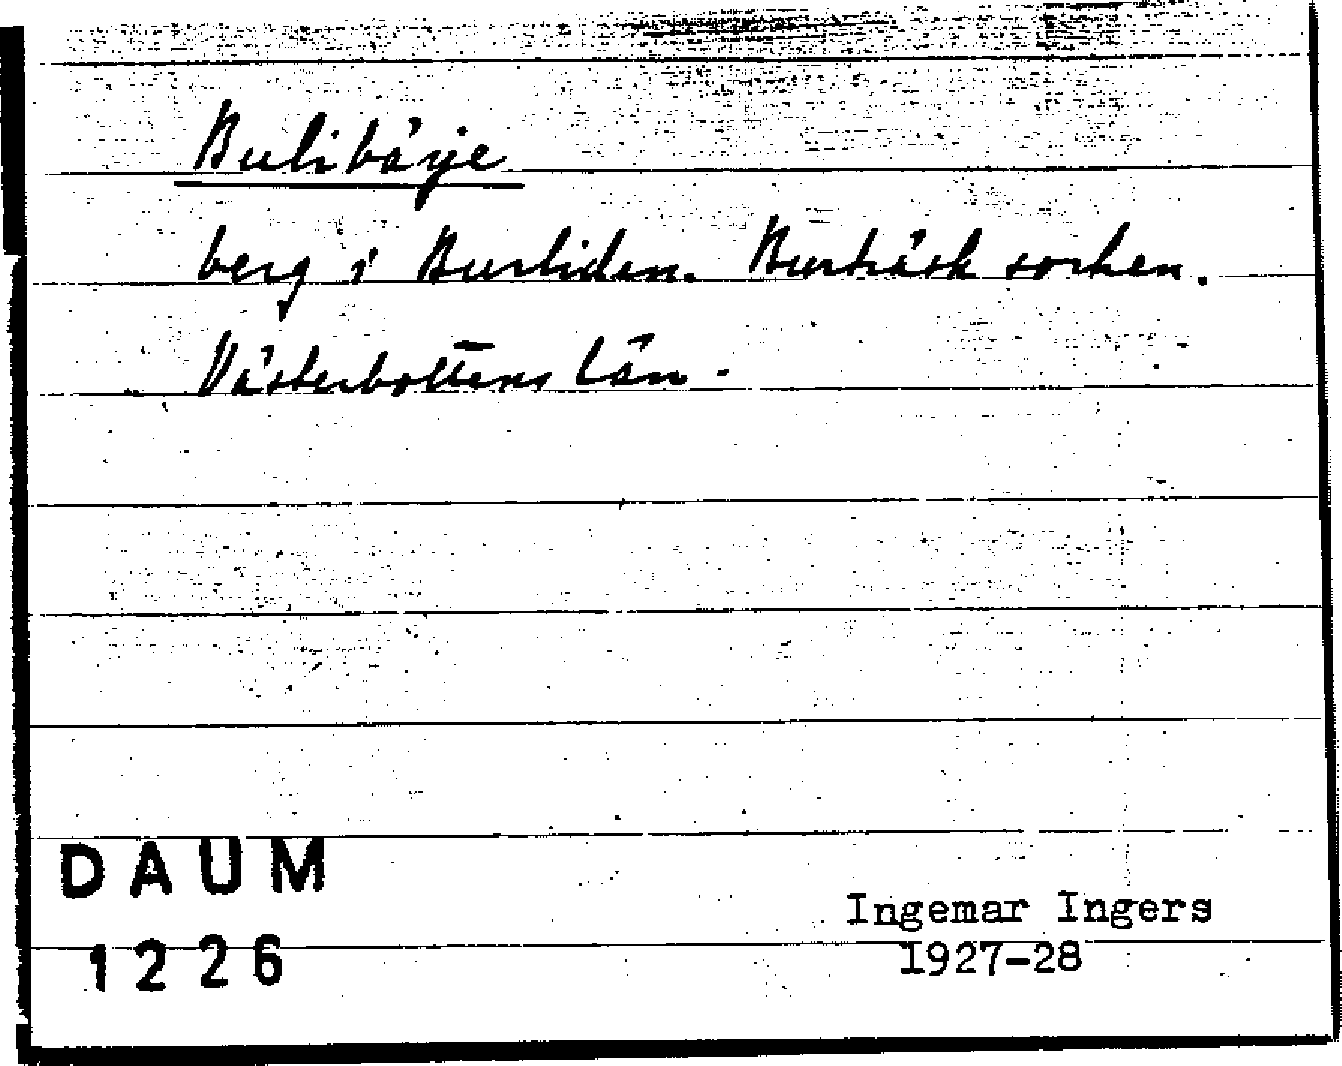 Bulibärje
berg i Burliden. Burträsk socken.
Västerbottens län.
DAUM
1226
Ingemar Ingers
1927-28